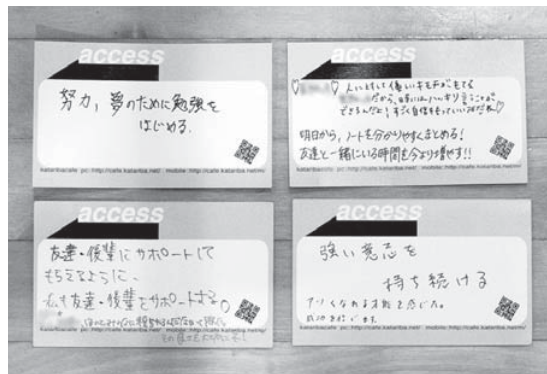 access
努力, 夢のために勉強を
はじめる.
kataribacafe pc:http://cafe.katariba.net/ mobile:http://cafe.katariba.net/m/
access
人に対して優しいキモチがもてる
だから、時にはハッキリ言うことが
できるんだよ!すごく自信をもっていい
明日から、ノートを分かりやすくまとめる!
友達と一緒にいる時間を今より増やす!!
kataribacafe pc:http://cafe.katariba.net/ mobile:http://cafe.katariba.net/m/
access
友達・後輩にサポートして
もらえるように、
私も友達・後輩をサポートする。
kataribacafe pc:http://cafe.katariba.net/ mobile:http://cafe.katariba.net/m/
access
強い意志を
持ち続ける
kataribacafe pc:http://cafe.katariba.net/ mobile:http://cafe.katariba.net/m/